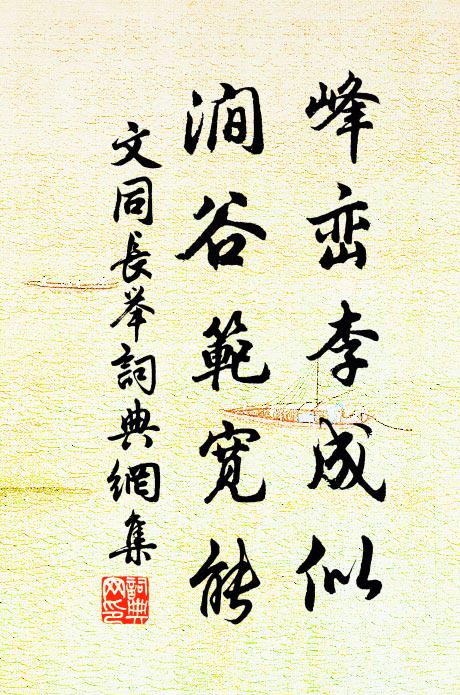 峰峦李成似
涧谷範寬能
文同長举詞典網集
詞典網印